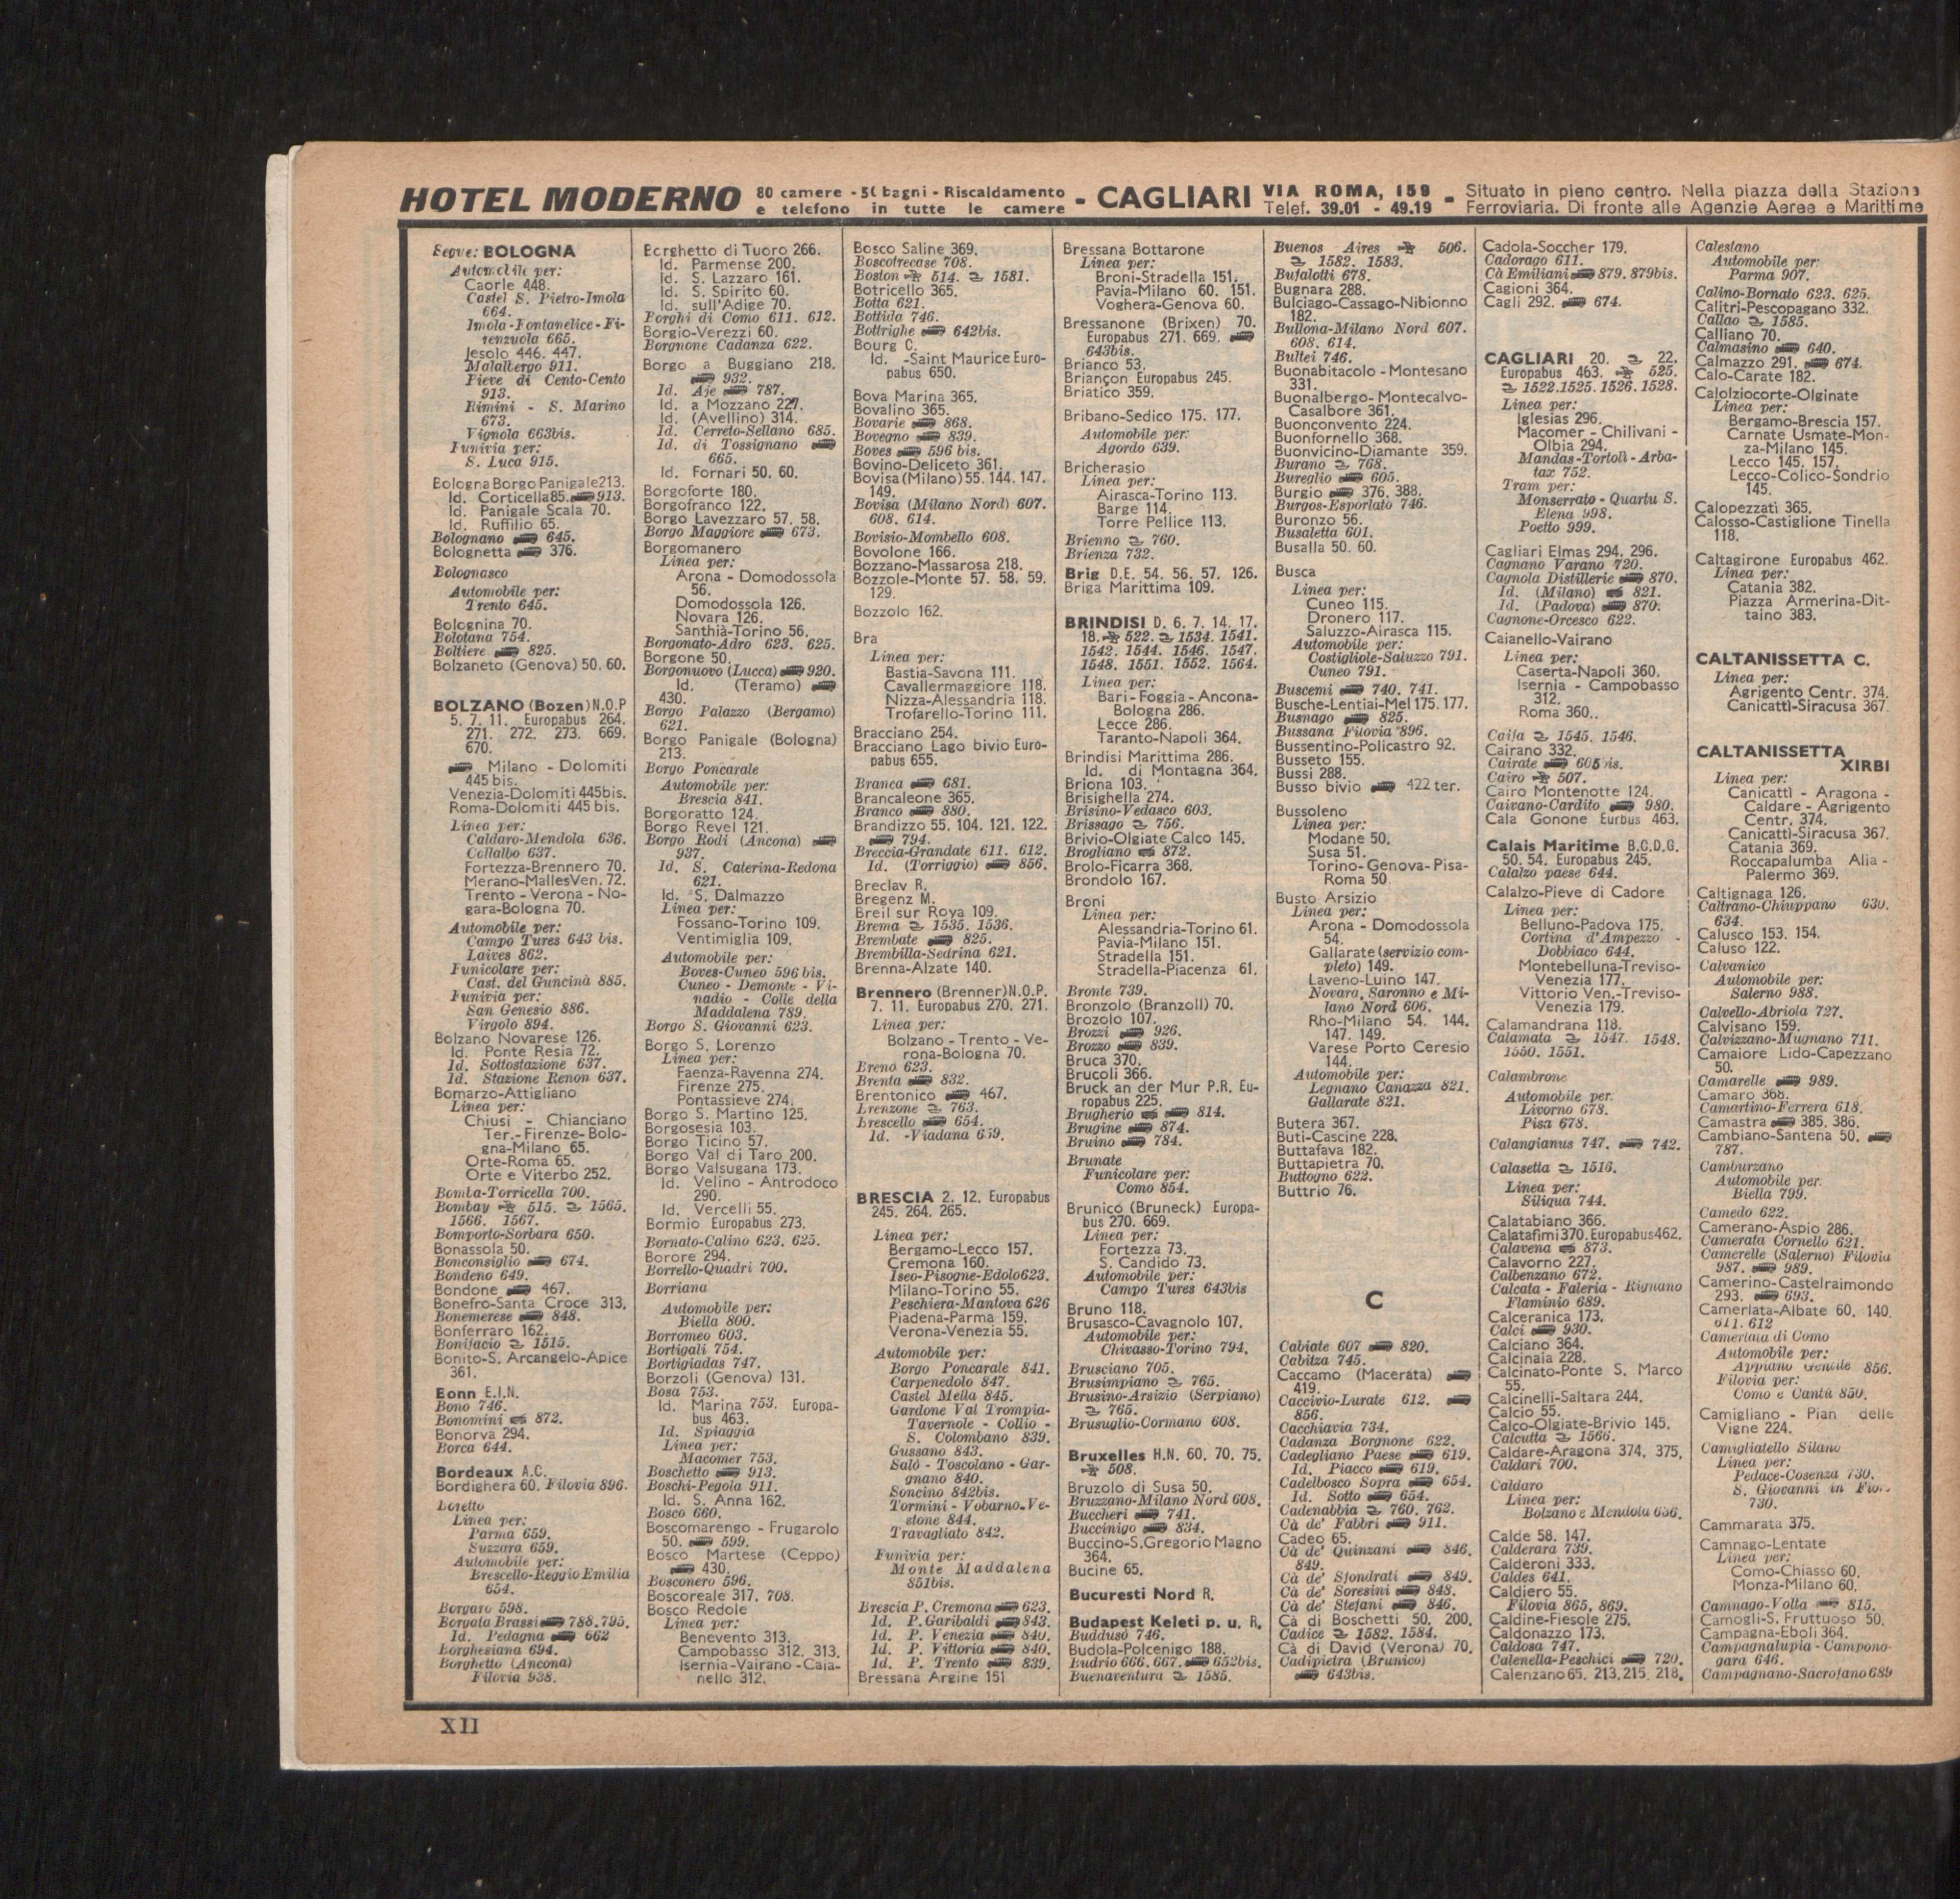 HOTEL MODERNO 80 camere - 50 bagni - Riscaldamento e telefono in tutte le camere - CAGLIARI VIA ROMA, 159 Telef. 39.01 - 49.19 - Situato in pieno centro. Nella piazza della Stazione Ferroviaria. Di fronte alle Agenzie Aeree e Marittime
Segue: BOLOGNA
Automobile per:
Caorle 448.
Castel S. Pietro-Imola
664.
Imola-Fontanelice-Fi-
renzuola 665.
Jesolo 446. 447.
Malalbergo 911.
Pieve di Cento-Cento
913.
Rimini - S. Marino
673.
Vignola 663bis.
Funivia per:
S. Luca 915.
Bologna Borgo Panigale 213.
Id. Corticella 85. 913.
Id. Panigale Scala 70.
Id. Ruffilio 65.
Bolognano 645.
Bolognetta 376.
Bolognasco
Automobile per:
Trento 645.
Bolognina 70.
Bolotana 754.
Boltiere 825.
Bolzaneto (Genova) 50. 60.
BOLZANO (Bozen) N.O.P
5. 7. 11. Europabus 264.
271. 272. 273. 669.
670.
Milano - Dolomiti
445 bis.
Venezia-Dolomiti 445bis.
Roma-Dolomiti 445 bis.
Linea per:
Caldaro-Mendola 636.
Collalbo 637.
Fortezza-Brennero 70.
Merano-Malles Ven. 72.
Trento - Verona - No-
gara-Bologna 70.
Automobile per:
Campo Tures 643 bis.
Laives 862.
Funicolare per:
Cast. del Guncinà 885.
Funivia per:
San Genesio 886.
Virgolo 894.
Bolzano Novarese 126.
Id. Ponte Resia 72.
Id. Sottostazione 637.
Id. Stazione Renon 637.
Bomarzo-Attigliano
Linea per:
Chiusi - Chianciano
Ter.-Firenze-Bolo-
gna-Milano 65.
Orte-Roma 65.
Orte e Viterbo 252.
Bomba-Torricella 700.
Bombay 515. 1565.
1566. 1567.
Bomporto-Sorbara 650.
Bonassola 50.
Bonconsiglio 674.
Bondeno 649.
Bondone 467.
Bonefro-Santa Croce 313.
Bonemerese 848.
Bonferraro 162.
Bonifacio 1515.
Bonito-S. Arcangelo-Apice
361.
Bonn E.I.N.
Bono 746.
Bonomini 872.
Bonorva 294.
Borca 644.
Bordeaux A.C.
Bordighera 60. Filovia 896.
Boretto
Linea per:
Parma 659.
Suzzara 659.
Automobile per:
Brescello-Reggio Emilia
654.
Borgaro 598.
Borgata Brassi 788.795.
Id. Pedagna 662
Borghesiana 694.
Borghetto (Ancona)
Filovia 938.
Borghetto di Tuoro 266.
Id. Parmense 200.
Id. S. Lazzaro 161.
Id. S. Spirito 60.
Id. sull'Adige 70.
Borghi di Como 611. 612.
Borgio-Verezzi 60.
Borgnone Cadanza 622.
Borgo a Buggiano 218.
932.
Id. Aje 787.
Id. a Mozzano 227.
Id. (Avellino) 314.
Id. Cerreto-Sellano 685.
Id. di Tossignano
665.
Id. Fornari 50. 60.
Borgoforte 180.
Borgofranco 122.
Borgo Lavezzaro 57. 58.
Borgo Maggiore 673.
Borgomanero
Linea per:
Arona - Domodossola
56.
Domodossola 126.
Novara 126.
Santhià-Torino 56.
Borgonato-Adro 623. 625.
Borgone 50.
Borgonuovo (Lucca) 920.
Id. (Teramo)
430.
Borgo Palazzo (Bergamo)
621.
Borgo Panigale (Bologna)
213.
Borgo Poncarale
Automobile per:
Brescia 841.
Borgoratto 124.
Borgo Revel 121.
Borgo Rodi (Ancona)
937.
Id. S. Caterina-Redona
621.
Id. S. Dalmazzo
Linea per:
Fossano-Torino 109.
Ventimiglia 109.
Automobile per:
Boves-Cuneo 596 bis.
Cuneo - Demonte - Vi-
nadio - Colle della
Maddalena 789.
Borgo S. Giovanni 623.
Borgo S. Lorenzo
Linea per:
Faenza-Ravenna 274.
Firenze 275.
Pontassieve 274.
Borgo S. Martino 125.
Borgosesia 103.
Borgo Ticino 57.
Borgo Val di Taro 200.
Borgo Valsugana 173.
Id. Velino - Antrodoco
290.
Id. Vercelli 55.
Bormio Europabus 273.
Bornato-Calino 623. 625.
Borore 294.
Borrello-Quadri 700.
Borriana
Automobile per:
Biella 800.
Borromeo 603.
Bortigali 754.
Bortigiadas 747.
Borzoli (Genova) 131.
Bosa 753.
Id. Marina 753. Europa-
bus 463.
Id. Spiaggia
Linea per:
Macomer 753.
Boschetto 913.
Boschi-Pegola 911.
Id. S. Anna 162.
Bosco 660.
Boscomarengo - Frugarolo
50. 599.
Bosco Martese (Ceppo)
430.
Bosconero 596.
Boscoreale 317. 708.
Bosco Redole
Linea per:
Benevento 313.
Campobasso 312. 313.
Isernia-Vairano-Caia-
nello 312.
Bosco Saline 369.
Boscotrecase 708.
Boston 514. 1581.
Botricello 365.
Botta 621.
Bottida 746.
Bottrighe 642bis.
Bourg C.
Id. -Saint Maurice Euro-
pabus 650.
Bova Marina 365.
Bovalino 365.
Bovarie 868.
Bovegno 839.
Boves 596 bis.
Bovino-Deliceto 361.
Bovisa (Milano) 55. 144. 147.
149.
Bovisa (Milano Nord) 607.
608. 614.
Bovisio-Mombello 608.
Bovolone 166.
Bozzano-Massarosa 218.
Bozzole-Monte 57. 58. 59.
129.
Bozzolo 162.
Bra
Linea per:
Bastia-Savona 111.
Cavallermaggiore 118.
Nizza-Alessandria 118.
Trofarello-Torino 111.
Bracciano 254.
Bracciano Lago bivio Euro-
pabus 655.
Branca 681.
Brancaleone 365.
Branco 880.
Brandizzo 55. 104. 121. 122.
794.
Breccia-Grandate 611. 612.
Id. (Torriggio) 856.
Breclav R.
Bregenz M.
Breil sur Roya 109.
Brema 1535. 1536.
Brembate 825.
Brembilla-Sedrina 621.
Brenna-Alzate 140.
Brennero (Brenner) N.O.P.
7. 11. Europabus 270. 271.
Linea per:
Bolzano - Trento - Ve-
rona-Bologna 70.
Breno 623.
Brenta 832.
Brentonico 467.
Brenzone 763.
Brescello 654.
Id. -Viadana 659.
BRESCIA 2. 12. Europabus
245. 264. 265.
Linea per:
Bergamo-Lecco 157.
Cremona 160.
Iseo-Pisogne-Edolo 623.
Milano-Torino 55.
Peschiera-Mantova 626
Piadena-Parma 159.
Verona-Venezia 55.
Automobile per:
Borgo Poncarale 841.
Carpenedolo 847.
Castel Mella 845.
Gardone Val Trompia-
Tavernole - Collio -
S. Colombano 839.
Gussano 843.
Salò - Toscolano - Gar-
gnano 840.
Soncino 842bis.
Tormini - Vobarno-Ve-
stone 844.
Travagliato 842.
Funivia per:
Monte Maddalena
851bis.
Brescia P. Cremona 623.
Id. P. Garibaldi 843.
Id. P. Venezia 840.
Id. P. Vittoria 840.
Id. P. Trento 839.
Bressana Argine 151
Bressana Bottarone
Linea per:
Broni-Stradella 151.
Pavia-Milano 60. 151.
Voghera-Genova 60.
Bressanone (Brixen) 70.
Europabus 271. 669.
643bis.
Brianco 53.
Briançon Europabus 245.
Briatico 359.
Bribano-Sedico 175. 177.
Automobile per:
Agordo 639.
Bricherasio
Linea per:
Airasca-Torino 113.
Barge 114.
Torre Pellice 113.
Brienno 760.
Brienza 732.
Brig D.E. 54. 56. 57. 126.
Briga Marittima 109.
BRINDISI D. 6. 7. 14. 17.
18. 522. 1534. 1541.
1542. 1544. 1546. 1547.
1548. 1551. 1552. 1564.
Linea per:
Bari-Foggia-Ancona-
Bologna 286.
Lecce 286.
Taranto-Napoli 364.
Brindisi Marittima 286.
Id. di Montagna 364.
Briona 103.
Brisighella 274.
Brisino-Vedasco 603.
Brissago 756.
Brivio-Olgiate Calco 145.
Brogliano 872.
Brolo-Ficarra 368.
Brondolo 167.
Broni
Linea per:
Alessandria-Torino 61.
Pavia-Milano 151.
Stradella 151.
Stradella-Piacenza 61.
Bronte 739.
Bronzolo (Branzoll) 70.
Brozolo 107.
Brozzi 926.
Brozzo 839.
Bruca 370.
Brucoli 366.
Bruck an der Mur P.R. Eu-
ropabus 225.
Brugherio 814.
Brugine 874.
Bruino 784.
Brunate
Funicolare per:
Como 854.
Brunico (Bruneck) Europa-
bus 270. 669.
Linea per:
Fortezza 73.
S. Candido 73.
Automobile per:
Campo Tures 643bis
Bruno 118.
Brusasco-Cavagnolo 107.
Automobile per:
Chivasso-Torino 794.
Brusciano 705.
Brusimpiano 765.
Brusino-Arsizio (Serpiano)
765.
Brusuglio-Cormano 608.
Bruxelles H.N. 60. 70. 75.
508.
Bruzolo di Susa 50.
Bruzzano-Milano Nord 608.
Buccheri 741.
Buccinigo 834.
Buccino-S.Gregorio Magno
364.
Bucine 65.
Bucuresti Nord R.
Budapest Keleti p. u. R.
Buddusò 746.
Budola-Polcenigo 188.
Budrio 666. 667. 652bis.
Buenaventura 1585.
Buenos Aires 506.
1582. 1583.
Bufalotti 678.
Bugnara 288.
Bulciago-Cassago-Nibionno
182.
Bullona-Milano Nord 607.
608. 614.
Bultei 746.
Buonabitacolo - Montesano
331.
Buonalbergo-Montecalvo-
Casalbore 361.
Buonconvento 224.
Buonfornello 368.
Buonvicino-Diamante 359.
Burano 768.
Bureglio 605.
Burgio 376. 388.
Burgos-Esporlato 746.
Buronzo 56.
Busaletta 601.
Busalla 50. 60.
Busca
Linea per:
Cuneo 115.
Dronero 117.
Saluzzo-Airasca 115.
Automobile per:
Costigliole-Saluzzo 791.
Cuneo 791.
Buscemi 740. 741.
Busche-Lentiai-Mel 175. 177.
Busnago 825.
Bussana Filovia 896.
Bussentino-Policastro 92.
Busseto 155.
Bussi 288.
Busso bivio 422 ter.
Bussoleno
Linea per:
Modane 50.
Susa 51.
Torino-Genova-Pisa-
Roma 50
Busto Arsizio
Linea per:
Arona - Domodossola
54.
Gallarate (servizio com-
pleto) 149.
Laveno-Luino 147.
Novara, Saronno e Mi-
lano Nord 606.
Rho-Milano 54. 144.
147. 149.
Varese Porto Ceresio
144.
Automobile per:
Legnano Canazza 821.
Gallarate 821.
Butera 367.
Buti-Cascine 228.
Buttafava 182.
Buttapietra 70.
Buttogno 622.
Buttrio 76.
C
Cabiate 607 820.
Cabitza 745.
Caccamo (Macerata)
419.
Caccivio-Lurate 612.
856.
Cacchiavia 734.
Cadanza Borgnone 622.
Cadegliano Paese 619.
Id. Piacco 619.
Cadelbosco Sopra 654.
Id. Sotto 654.
Cadenabbia 760. 762.
Cà de' Fabbri 911.
Cadeo 65.
Cà de' Quinzani 846.
849.
Cà de' Sfondrati 849.
Cà de' Soresini 848.
Cà de' Stefani 846.
Cà di Boschetti 50. 200.
Cadice 1582. 1584.
Cà di David (Verona) 70.
Cadipietra (Brunico)
643bis.
Cadola-Soccher 179.
Cadorago 611.
Cà Emiliani 879. 879bis.
Cagioni 364.
Cagli 292. 674.
CAGLIARI 20. 22.
Europabus 463. 525.
1522.1525. 1526. 1528.
Linea per:
Iglesias 296.
Macomer - Chilivani -
Olbia 294.
Mandas-Tortolì-Arba-
tax 752.
Tram per:
Monserrato - Quartu S.
Elena 998.
Poetto 999.
Cagliari Elmas 294. 296.
Cagnano Varano 720.
Cagnola Distillerie 870.
Id. (Milano) 821.
Id. (Padova) 870.
Cagnone-Orcesco 622.
Caianello-Vairano
Linea per:
Caserta-Napoli 360.
Isernia - Campobasso
312.
Roma 360..
Caifa 1545. 1546.
Cairano 332.
Cairate 605bis.
Cairo 507.
Cairo Montenotte 124.
Caivano-Cardito 980.
Cala Gonone Eurbus 463.
Calais Maritime B.C.D.G.
50. 54. Europabus 245.
Calalzo paese 644.
Calalzo-Pieve di Cadore
Linea per:
Belluno-Padova 175.
Cortina d'Ampezzo -
Dobbiaco 644.
Montebelluna-Treviso-
Venezia 177.
Vittorio Ven.-Treviso-
Venezia 179.
Calamandrana 118.
Calamata 1547. 1548.
1550. 1551.
Calambrone
Automobile per.
Livorno 678.
Pisa 678.
Calangianus 747. 742.
Calasetta 1516.
Linea per:
Siliqua 744.
Calatabiano 366.
Calatafimi 370. Europabus 462.
Calavena 873.
Calavorno 227.
Calbenzano 672.
Calcata - Faleria - Rignano
Flaminio 689.
Calceranica 173.
Calci 930.
Calciano 364.
Calcinaia 228.
Calcinato-Ponte S. Marco
55.
Calcinelli-Saltara 244.
Calcio 55.
Calco-Olgiate-Brivio 145.
Calcutta 1566.
Caldare-Aragona 374. 375.
Caldari 700.
Caldaro
Linea per:
Bolzano e Mendola 636.
Calde 58. 147.
Calderara 739.
Calderoni 333.
Caldes 641.
Caldiero 55.
Filovia 865. 869.
Caldine-Fiesole 275.
Caldonazzo 173.
Caldosa 747.
Calenella-Peschici 720.
Calenzano 65. 213. 215. 218.
Calestano
Automobile per:
Parma 907.
Calino-Bornato 623. 625.
Calitri-Pescopagano 332.
Callao 1585.
Calliano 70.
Calmasino 640.
Calmazzo 291. 674.
Calo-Carate 182.
Calolziocorte-Olginate
Linea per:
Bergamo-Brescia 157.
Carnate Usmate-Mon-
za-Milano 145.
Lecco 145. 157.
Lecco-Colico-Sondrio
145.
Calopezzati 365.
Calosso-Castiglione Tinella
118.
Caltagirone Europabus 462.
Linea per:
Catania 382.
Piazza Armerina-Dit-
taino 383.
CALTANISSETTA C.
Linea per:
Agrigento Centr. 374.
Canicattì-Siracusa 367.
CALTANISSETTA
XIRBI
Linea per:
Canicattì - Aragona -
Caldare - Agrigento
Centr. 374.
Canicattì-Siracusa 367.
Catania 369.
Roccapalumba Alia -
Palermo 369.
Caltignaga 126.
Caltrano-Chiuppano 630.
634.
Calusco 153. 154.
Caluso 122.
Calvanico
Automobile per:
Salerno 988.
Calvello-Abriola 727.
Calvisano 159.
Calvizzano-Mugnano 711.
Camaiore Lido-Capezzano
50.
Camarelle 989.
Camaro 368.
Camartino-Ferrera 618.
Camastra 385. 386.
Cambiano-Santena 50.
787.
Camburzano
Automobile per:
Biella 799.
Camedo 622.
Camerano-Aspio 286.
Camerata Cornello 621.
Camerelle (Salerno) Filovia
987. 989.
Camerino-Castelraimondo
293. 693.
Camerlata-Albate 60. 140.
611. 612
Camerlata di Como
Automobile per:
Appiano Gentile 856.
Filovia per:
Como e Cantù 850.
Camigliano - Pian delle
Vigne 224.
Camigliatello Silano
Linea per:
Pedace-Cosenza 730.
S. Giovanni in
730.
Cammarata 375.
Camnago-Lentate
Linea per:
Como-Chiasso 60.
Monza-Milano 60.
Camnago-Volta 815.
Camogli-S. Fruttuoso 50.
Campagna-Eboli 364.
Campagnalupia - Campono-
gara 646.
Campagnano-Sacrofano 689
XII